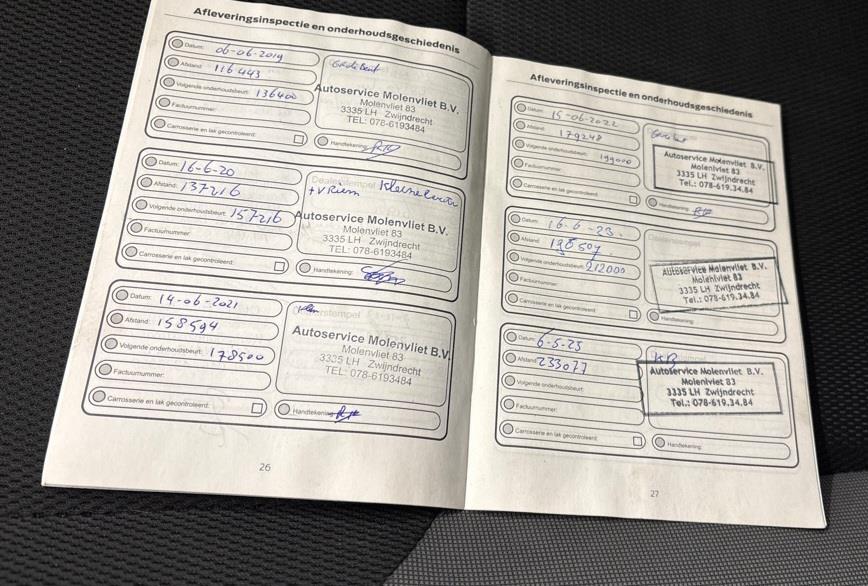 Afleveringsinspectie en onderhoudsgeschiedenis
Datum: 06-06-2019
Afstand: 116443
Volgende onderhoudsbeurt: 136400
Factuurnummer:
Carrosserie en lak gecontroleerd:
Autoservice Molenvliet B.V.
Molenvliet 83
3335 LH Zwijndrecht
TEL: 078-6193484
Handtekening:
Datum: 16-6-20
Afstand: 137216
Volgende onderhoudsbeurt: 157216
Factuurnummer:
Carrosserie en lak gecontroleerd:
Dealerstempel Kleine beurt
+ V Riem
Autoservice Molenvliet B.V.
Molenvliet 83
3335 LH Zwijndrecht
TEL: 078-6193484
Handtekening:
Datum: 14-06-2021
Afstand: 158594
Volgende onderhoudsbeurt: 178500
Factuurnummer:
Carrosserie en lak gecontroleerd:
Autoservice Molenvliet B.V.
Molenvliet 83
3335 LH Zwijndrecht
TEL: 078-6193484
Handtekening:
26
Afleveringsinspectie en onderhoudsgeschiedenis
Datum: 15-06-2022
Afstand: 179248
Volgende onderhoudsbeurt: 199000
Factuurnummer:
Carrosserie en lak gecontroleerd:
Autoservice Molenvliet B.V.
Molenlviet 83
3335 LH Zwijndrecht
Tel.: 078-619.34.84
Handtekening:
Datum: 16-6-23.
Afstand: 198507
Volgende onderhoudsbeurt: 212000
Factuurnummer:
Carrosserie en lak gecontroleerd:
Autoservice Molenvliet B.V.
Molenlviet 83
3335 LH Zwijndrecht
Tel.: 078-619.34.84
Handtekening:
Datum: 6-5-25
Afstand: 233077
Volgende onderhoudsbeurt:
Factuurnummer:
Carrosserie en lak gecontroleerd:
KB
Autoservice Molenvliet B.V.
Molenlviet 83
3335 LH Zwijndrecht
Tel.: 078-619.34.84
Handtekening:
27